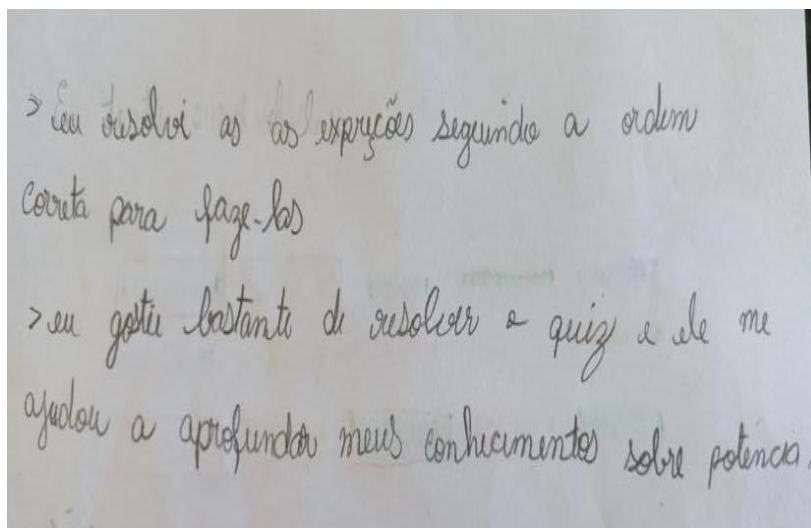 > Eu resolvi as as expreções seguindo a ordem
correta para faze-las
> eu gostei bastante de resolver o quiz e ele me
ajudou a aprofundar meus conhecimentos sobre potencia.